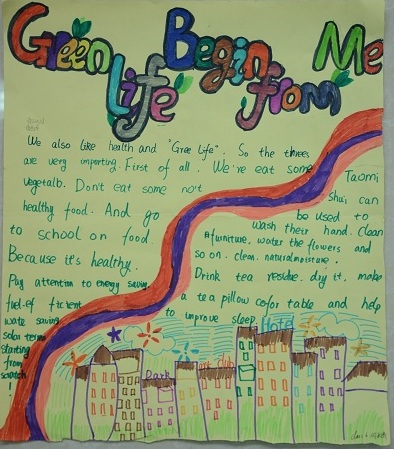 Green Life Begin from Me
We also like health and "Gree life". So the threes
are very importing. First of all. We're eat some
vegetalb. Don't eat some no't
healthy food. And go
to school on food
Because it's healthy.
Pay attention to energy saving
fuel-efficient
water saving
solar term
Starting
from
scratch
!
Taomi
Shui can
be used to
wash their hand. clean
furniture, water the flowers and
so on. clean. natural moisture.
Drink tea residue. dry it. make
a tea pillow cofor table and help
to improve sleep.
Hotel
Park
club